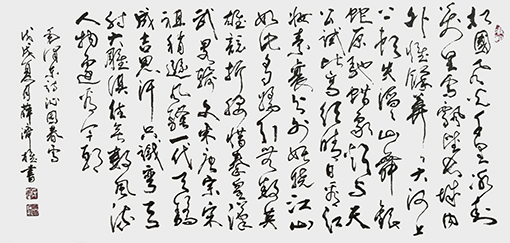 北國風光千里冰封
萬里雪飄望長城内
外惟餘莽莽大河上
下頓失滔滔山舞銀
蛇原馳蠟象欲與天
公試比高須晴日看紅
妝素裹分外妖嬈江山
如此多嬌引無數英
雄競折腰惜秦皇漢
武畧輸文采唐宗宋
祖稍遜風騷一代天驕
成吉思汗只識彎弓
射大雕俱往矣數風流
人物還看今朝
毛澤東詞沁園春雪
戊戌夏月薛濟書